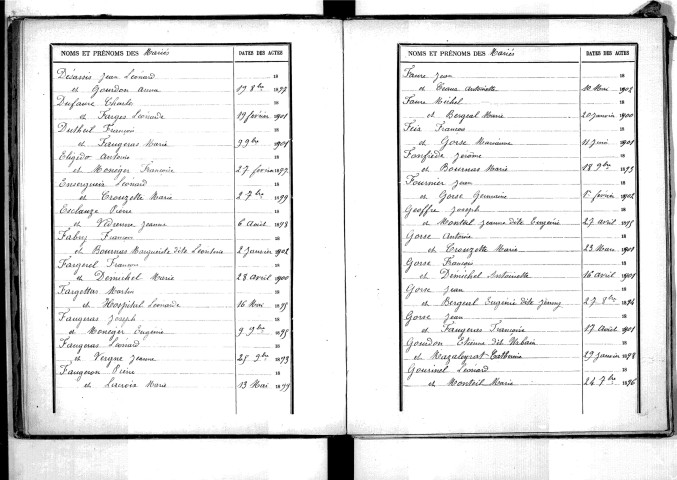 NOMS ET PRÉNOMS DES Mariés DATES DES ACTES
Désassis Jean Léonard 18
et Gourdon Anna 19 8bre 1897
Dufaure Charles 18
et Farges Léonarde 19 février 1901
Dutheil François 18
et Faugeras Marie 9 9bre 1901
Eligédo Antonio 18
et Monéger Françoise 27 février 1897
Enserguix Léonard 18
et Crouzette Marie 2 7bre 1899
Esclauze Pierre 18
et Vedrenne Jeanne 6 Août 1898
Fabry François 18
et Bournas Marguerite dite Léontine 2 Janvier 1902
Fargerel François 18
et Demichel Marie 28 avril 1900
Fargettas Martin 18
et Hospital Léonarde 16 Mai 1895
Faugeras Joseph 18
et Monéger Eugénie 9 9bre 1895
Faugeras Léonard 18
et Vergne Jeanne 25 9bre 1893
Faugeron Pierre 18
et Lacroix Marie 13 Mai 1899
NOMS ET PRÉNOMS DES Mariés DATES DES ACTES
Faure Jean 18
et Ceaux Antoinette 10 Mai 1902
Faure Michel 18
et Bergeal Marie 20 janvier 1900
Feix François 18
et Gorse Marianne 11 Juin 1901
Fonfrède Jérôme 18
et Bournas Marie 18 9bre 1893
Fournier Jean 18
et Gorse Germaine 1er février 1902
Geoffre Joseph 18
et Monteil Jeanne dite Eugénie 27 avril 1895
Gorse Antoine 18
et Crouzette Marie 23 Mars 1901
Gorse François 18
et Demichel Antoinette 16 avril 1901
Gorse Jean 18
et Bergeal Eugénie dite Jenny 27 8bre 1894
Gorse Jean 18
et Faugeras Françoise 17 Août 1901
Gourdon Etienne dit Urbain 18
et Mazaleyrat Catherine 29 janvier 1898
Gourinel Léonard 18
et Monteil Marie 24 7bre 1896